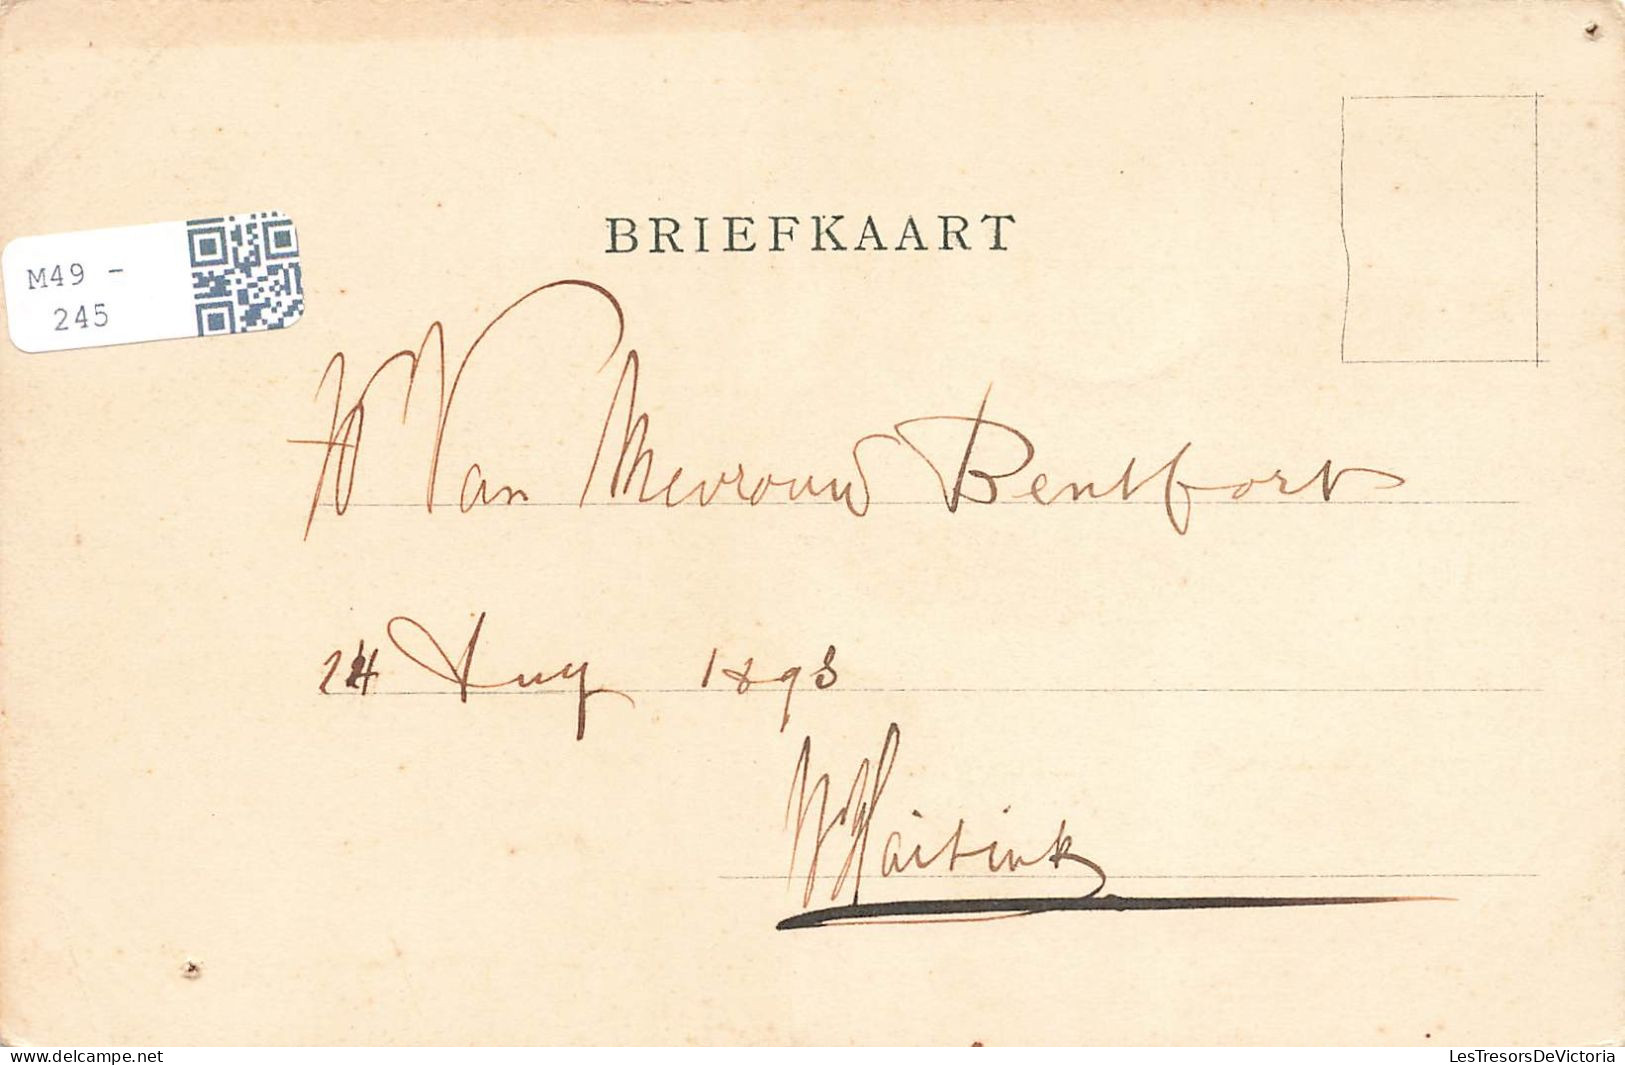 BRIEFKAART
M49 -
245
Van Mevrouw Bentfort
24 Aug 1893
Haitink
delcampe.net
LesTresorsDeVictoria